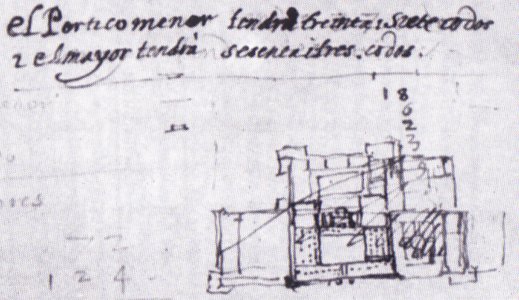 el Portico menor tendra treinta i siete codos
i el mayor tendrá sesenta i tres. codos.
1 8
6
2
3
3
1 2 4